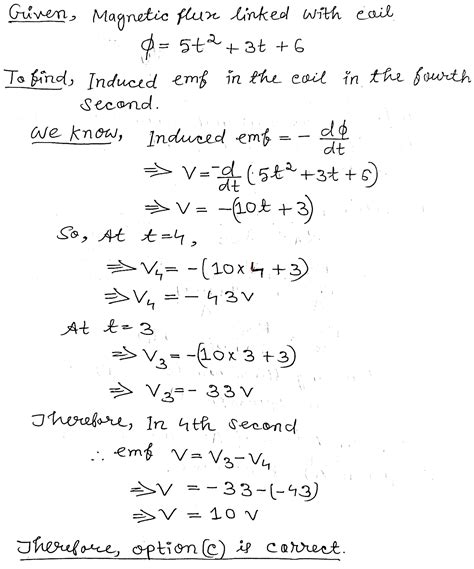 Given, Magnetic flux linked with coil
ϕ = 5t² + 3t + 6
To find, Induced emf in the coil in the fourth
second.
We know, Induced emf = - dϕ/dt
⇒ V = -d/dt (5t² + 3t + 6)
⇒ V = -(10t + 3)
So, At t=4,
⇒ V₄ = -(10×4 + 3)
⇒ V₄ = - 43V
At t = 3
⇒ V₃ = -(10×3 + 3)
⇒ V₃ = - 33V
Therefore, In 4th second
∴ emf V = V₃ - V₄
⇒ V = -33-(-43)
⇒ V = 10V
Therefore, option (c) is correct.